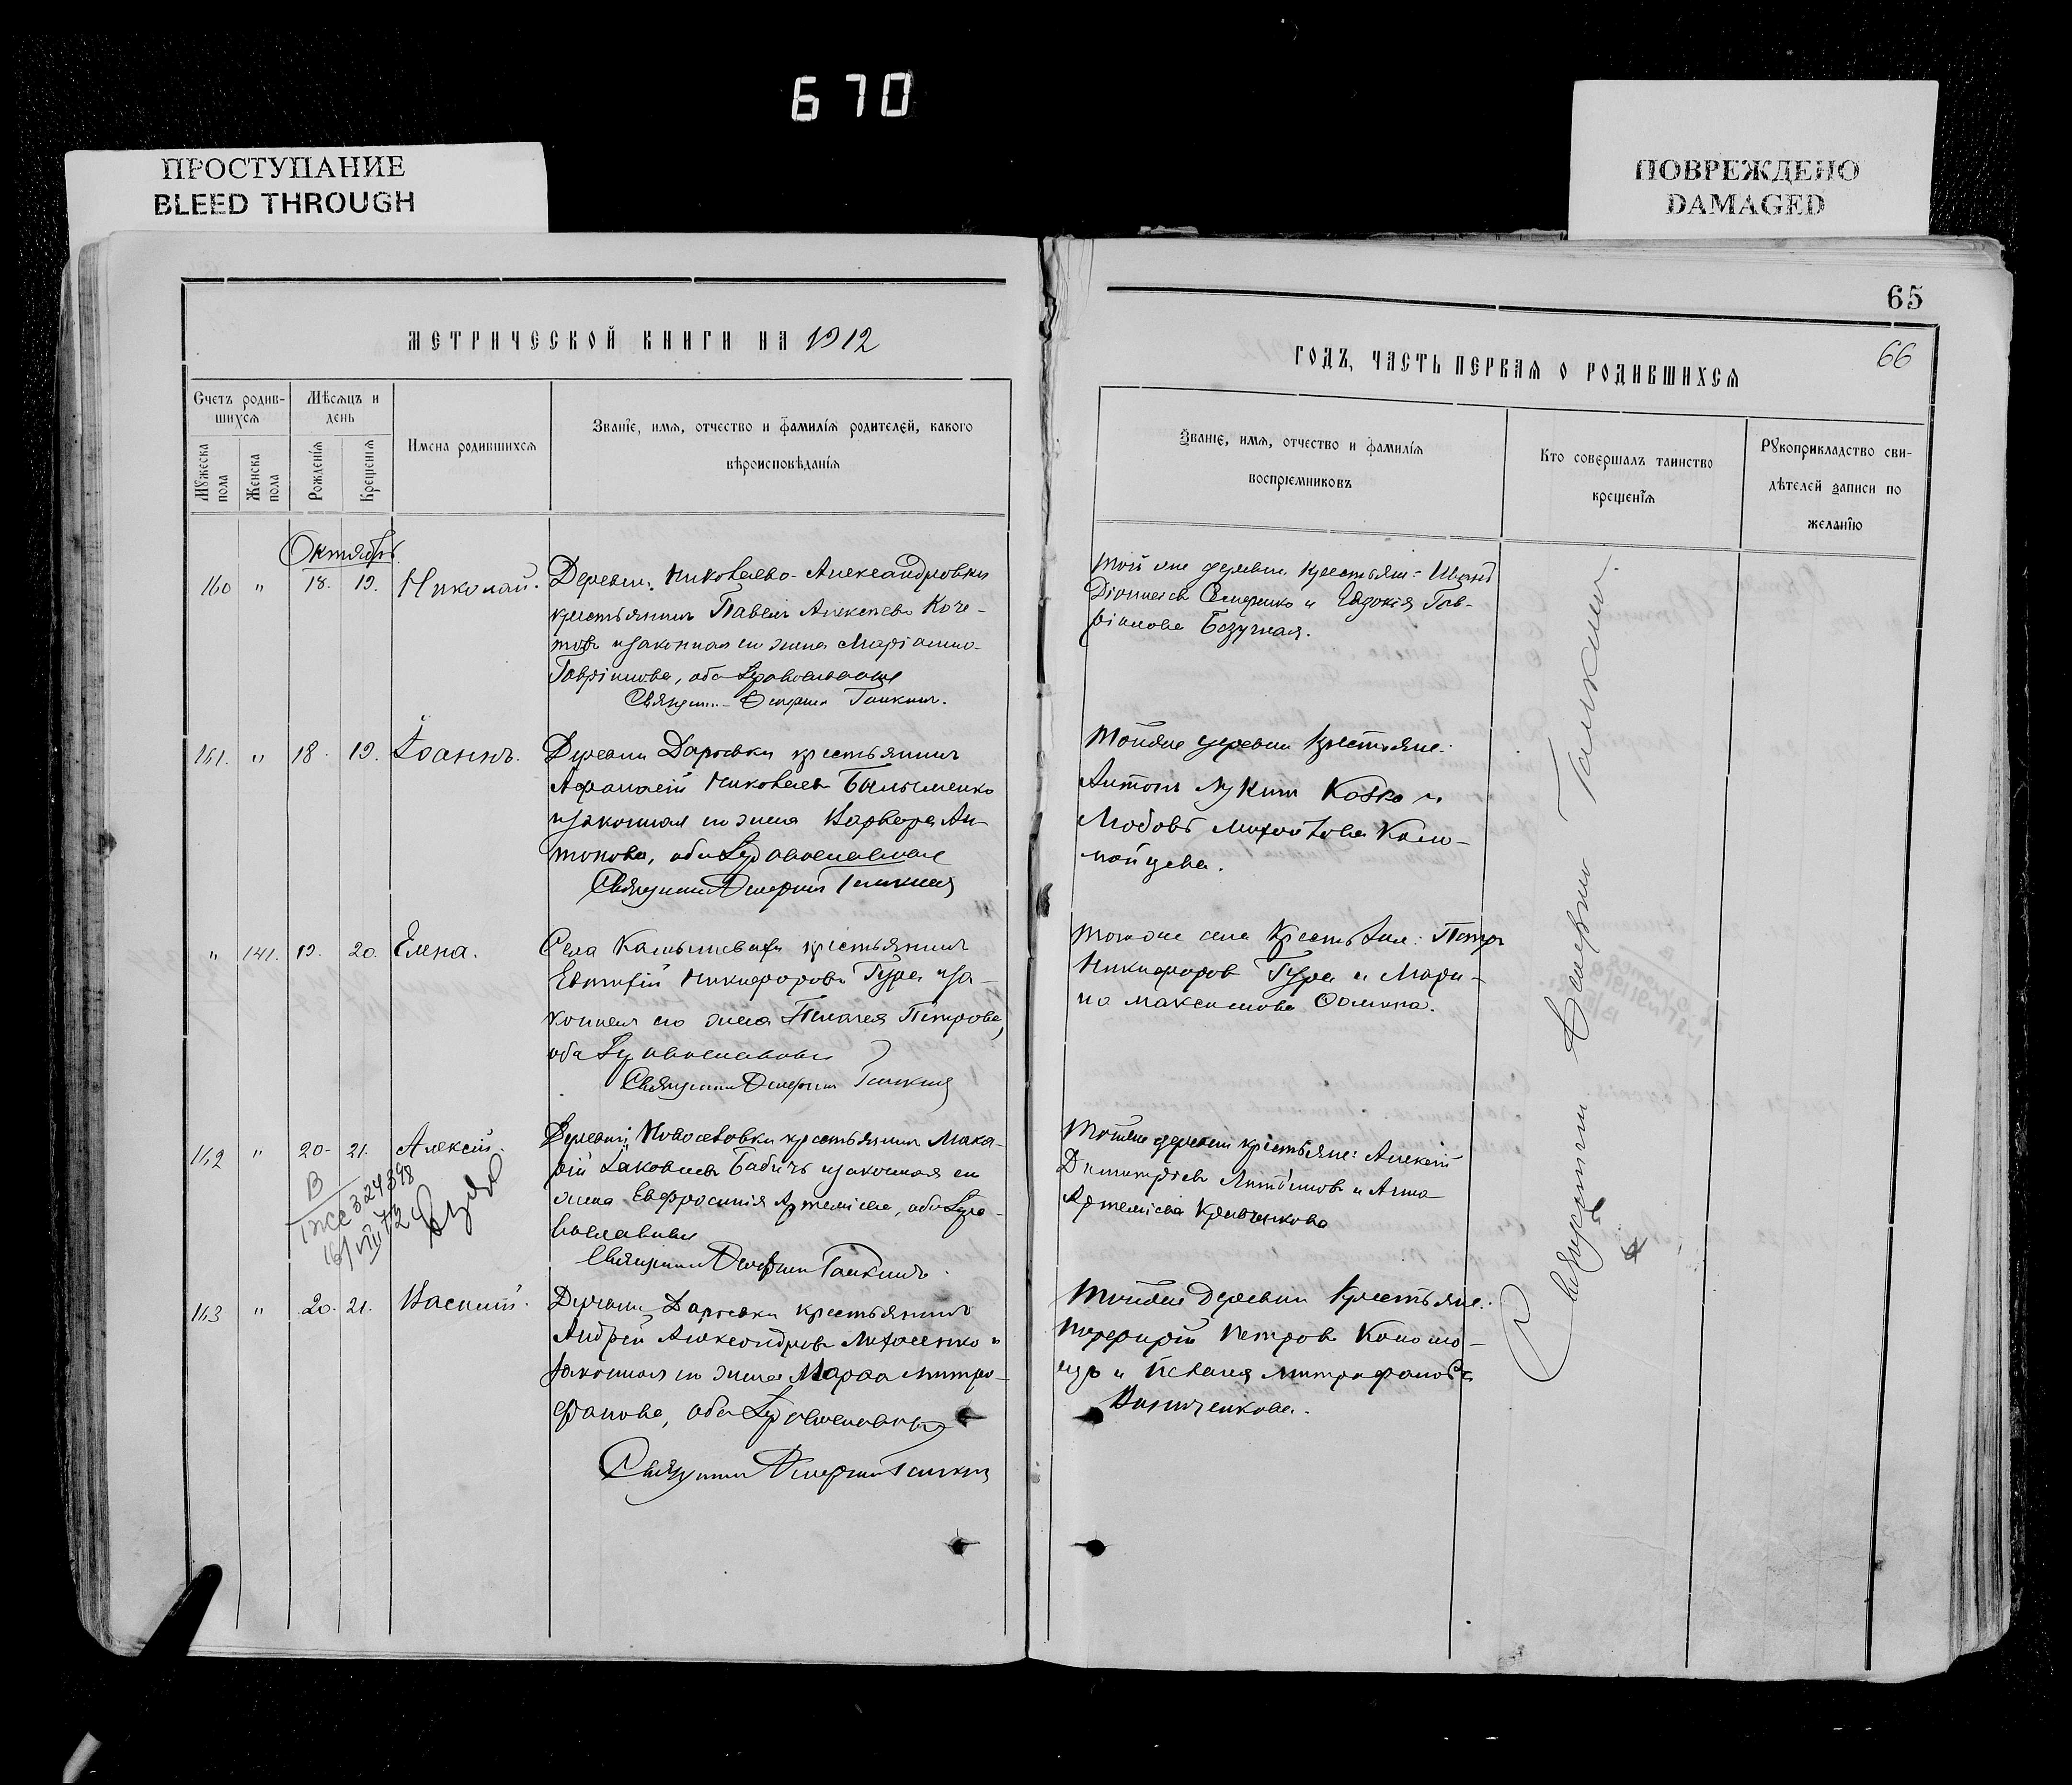 670
ПРОСТУПАНИЕ
BLEED THROUGH
ПОВРЕЖДЕНО
DAMAGED
65
66
МЕТРИЧЕСКОЙ КНИГИ НА 1912
ГОДЪ, ЧАСТЬ ПЕРВАЯ О РОДИВШИХСЯ
Счетъ родив-
шихся
Мѣсяцъ и
день
Мужеска пола
Женска пола
Рожденія
Крещенія
Имена родившихся
Званіе, имя, отчество и фамилія родителей, какого
вѣроисповѣданія
Званіе, имя, отчество и фамилія
воспріемниковъ
Кто совершалъ таинство
крещенія
Рукоприкладство сви-
дѣтелей записи по
желанію
Октябрь.
160 " 18. 19. Николай. Деревни Николаево-Александровки
крестьянинъ Павелъ Алексѣевъ Коче-
товъ и законная его жена Маріанна
Гавріилова, оба православные
Священникъ Димитрій Галкинъ.
Той же деревни крестьяне: Иванъ
Діонисіевъ Семеренко и Евдокія Гав-
ріилова Безучная.
161. " 18. 19. Іоаннъ. Деревни Даріевки крестьянинъ
Афанасій Николаевъ
и законная его жена Варвара Ан-
тонова, оба православные
Священникъ Димитрій Галкинъ
Той же деревни крестьяне:
Антонъ Лукинъ Кобко и
Любовь Коло-
мойцева.
" 141. 19. 20. Елена. Села крестьянинъ
Евтихій Никифоровъ Гура и за-
конная его жена Пелагея Петрова,
оба православные
Священникъ Димитрій Галкинъ
Того же села крестьяне: Петръ
Никифоровъ Гура и Мари-
на Максимова
162 " 20. 21. Алексій. Деревни крестьянинъ Мака-
рій Іаковлевъ Бабичъ и законная его
жена Евфросинія Артеміева, оба право-
славные
Священникъ Димитрій Галкинъ.
Той же деревни крестьяне: Алексій
Димитріевъ Литвиновъ и Анна
Артеміева Кравченкова
В
1жс 324398
16/VIII 72
163 " 20. 21. Василій. Деревни Даріевки крестьянинъ
Андрей Александровъ и
законная его жена Марѳа Митро-
фанова, оба православные
Священникъ Димитрій Галкинъ
Той же деревни крестьяне:
Порфирій Петровъ Коломо-
ецъ и Митрофанова
Священникъ Димитрій Галкинъ.